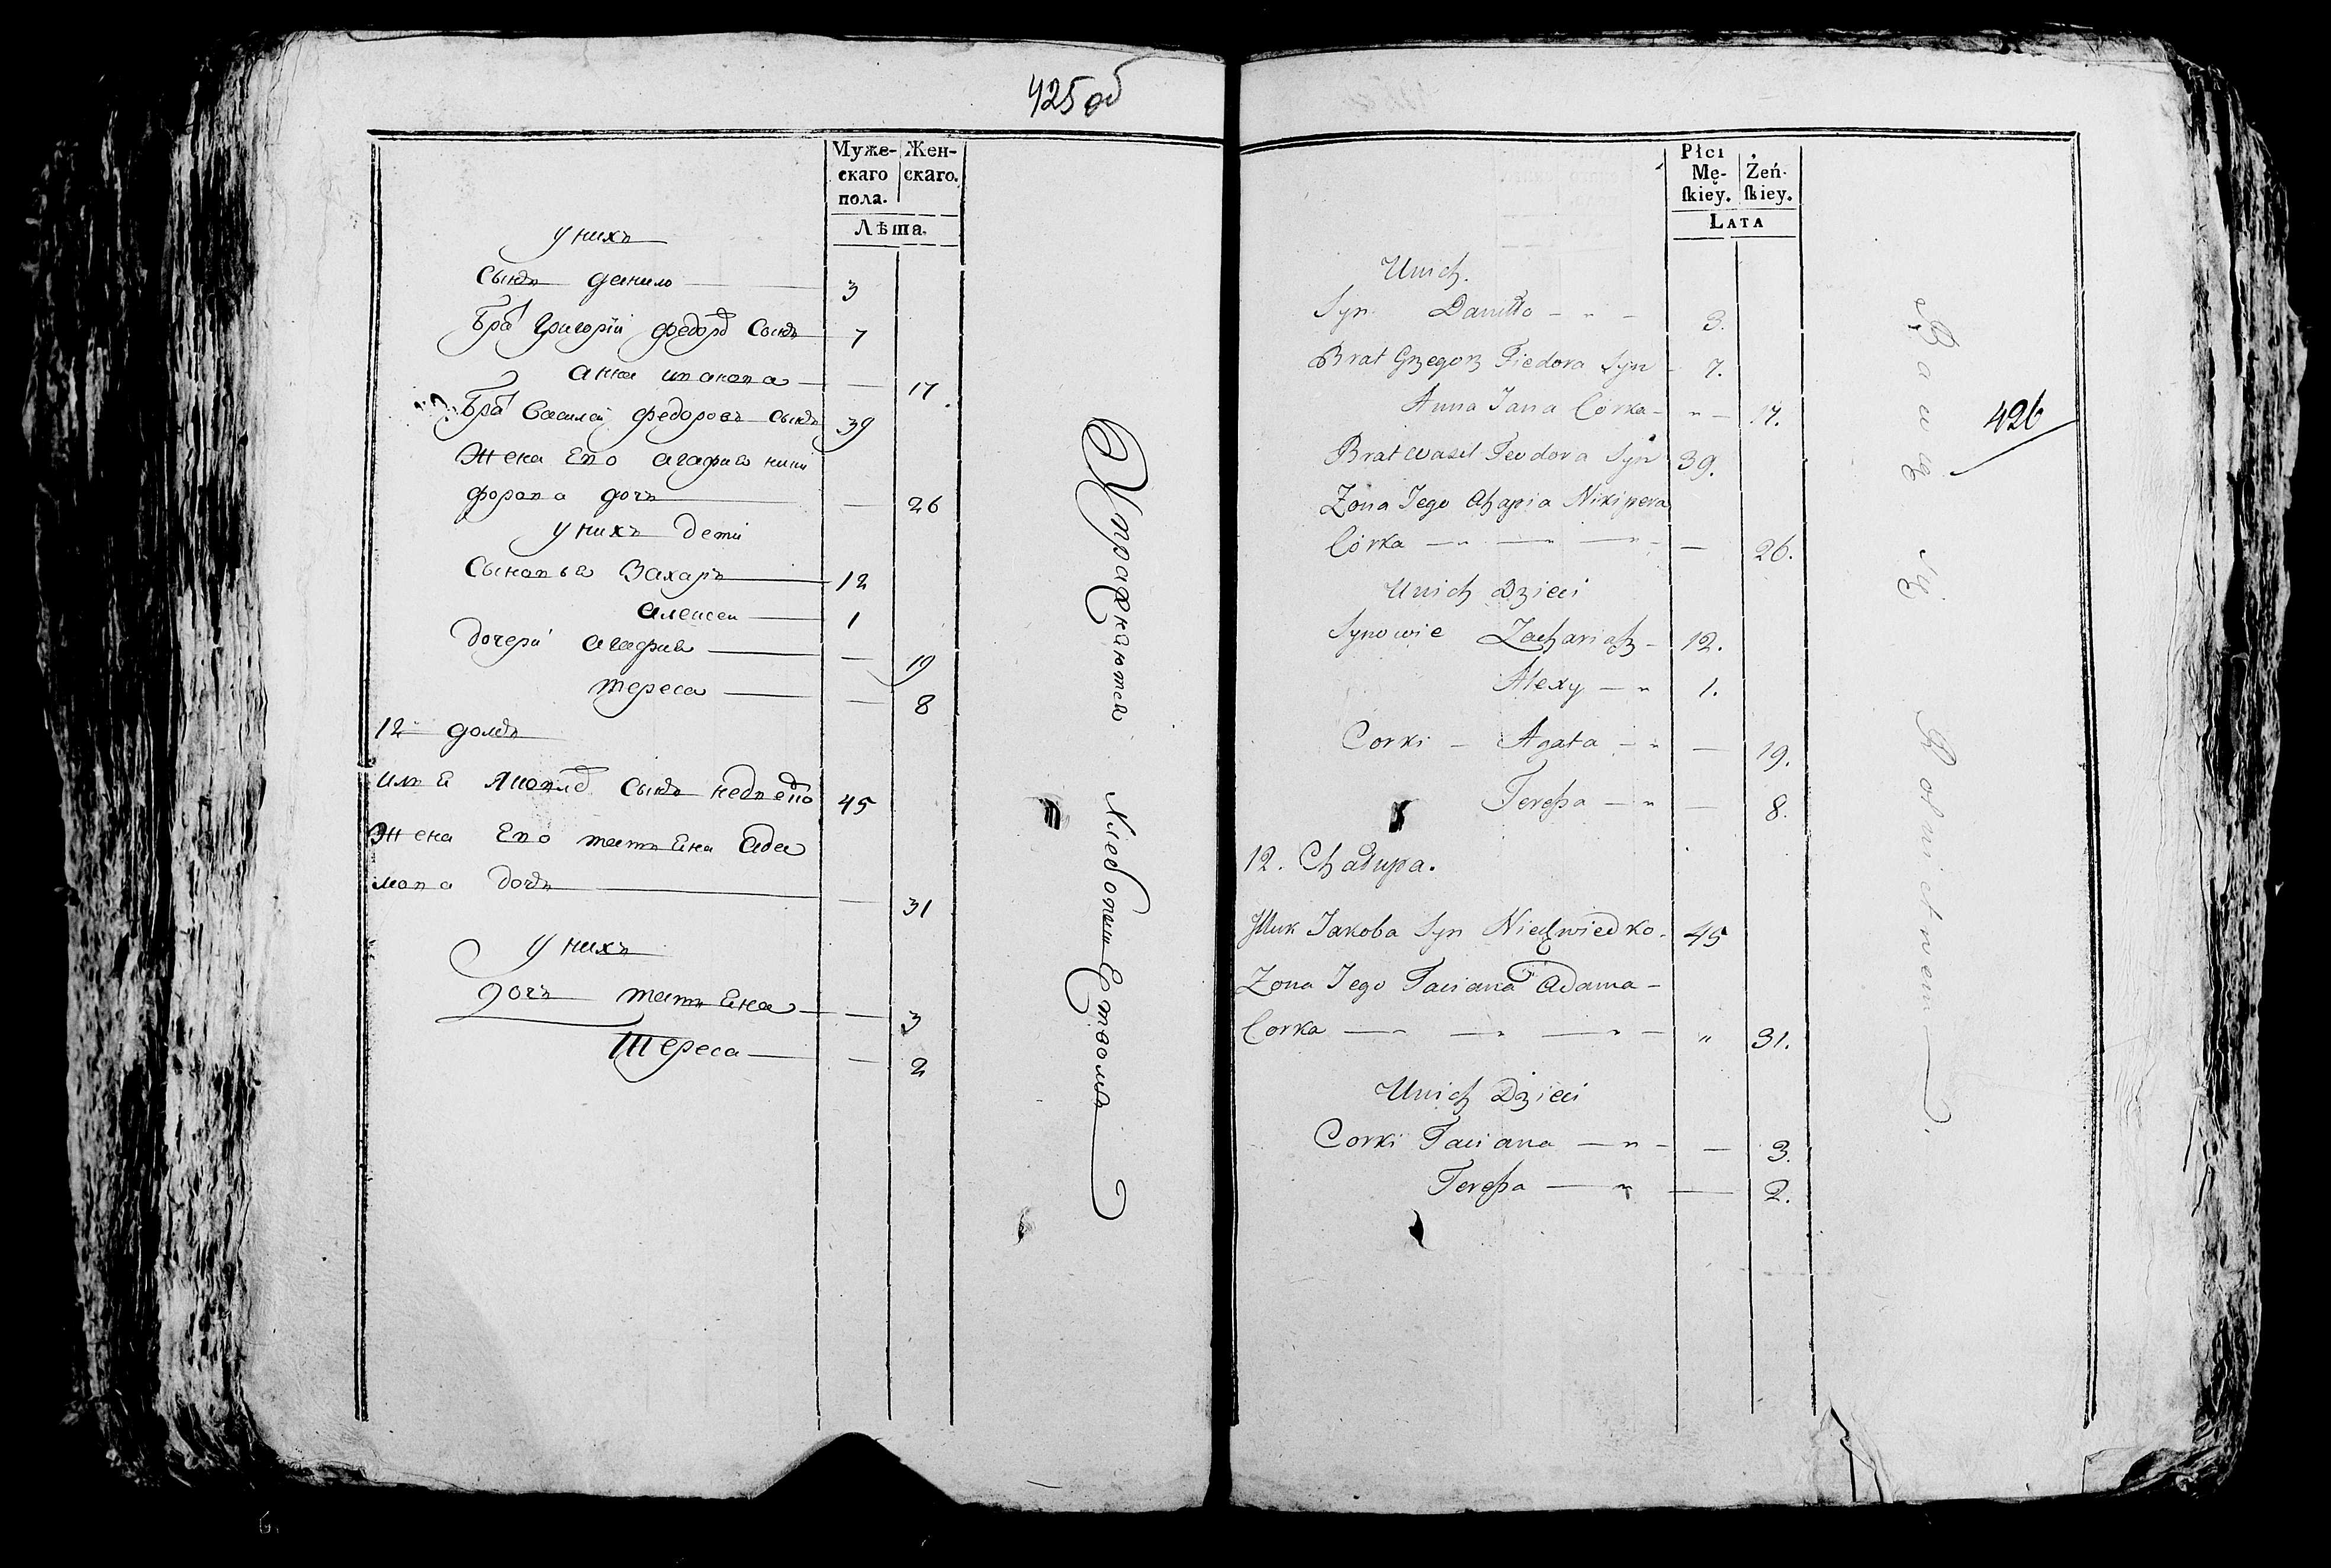 425 об
Муже-
скаго
пола.
Жен-
скаго.
Лѣта.
у нихъ
Сынъ данило 3
Бра григорiй федоро Сынъ 7
анна иванова 17.
Бра Василей федоровъ сынъ 39
Жена Его агафия ники
форова дочь 26
у нихъ дети
Сыновья Захаръ 12
алексеи 1
дочери агафия 19
тереса 8
12 домъ
45
Жена Его татьяна ада
мова дочь 31
у нихъ
дочь татьяна 3
тереса 2
Упражняются Хлебопашеством
426
Płci
Mę-
ſkiey.
Żeń-
ſkiey.
LATA
Unich.
Syn Daniłło 3.
Brat Grzegorz Fiedora Syn 7.
Anna Jana Córka 17.
Brat Wasil Feodora Syn 39.
Zona Jego Ahapia Nikipera
Córka 26.
Unich Dzieci
Synowie Zachariasz 12.
Alexy 1.
Corki Agata 19.
Tereſsa 8.
12. Chałupa.
Jakoba Syn Niedzwiedko 45
Zona Jego Taciana Adama
Corka 31.
Unich Dzieci
Corki Taciana 3.
Tereſsa 2.
Bawią się Rolnictwem